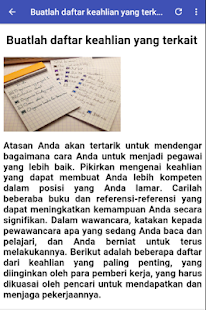 Buatlah daftar keahlian yang terk...
Buatlah daftar keahlian yang terkait
Atasan Anda akan tertarik untuk mendengar
bagaimana cara Anda untuk menjadi pegawai
yang lebih baik. Pikirkan mengenai keahlian
yang dapat membuat Anda lebih kompeten
dalam posisi yang Anda lamar. Carilah
beberaba buku dan referensi-referensi yang
dapat meningkatkan kemampuan Anda secara
signifikan. Dalam wawancara, katakan kepada
pewawancara apa yang sedang Anda baca dan
pelajari, dan Anda berniat untuk terus
melakukannya. Berikut adalah beberapa daftar
dari keahlian yang paling penting, yang
diinginkan oleh para pemberi kerja, yang harus
dikuasai oleh pencari untuk mendapatkan dan
menjaga pekerjaannya.